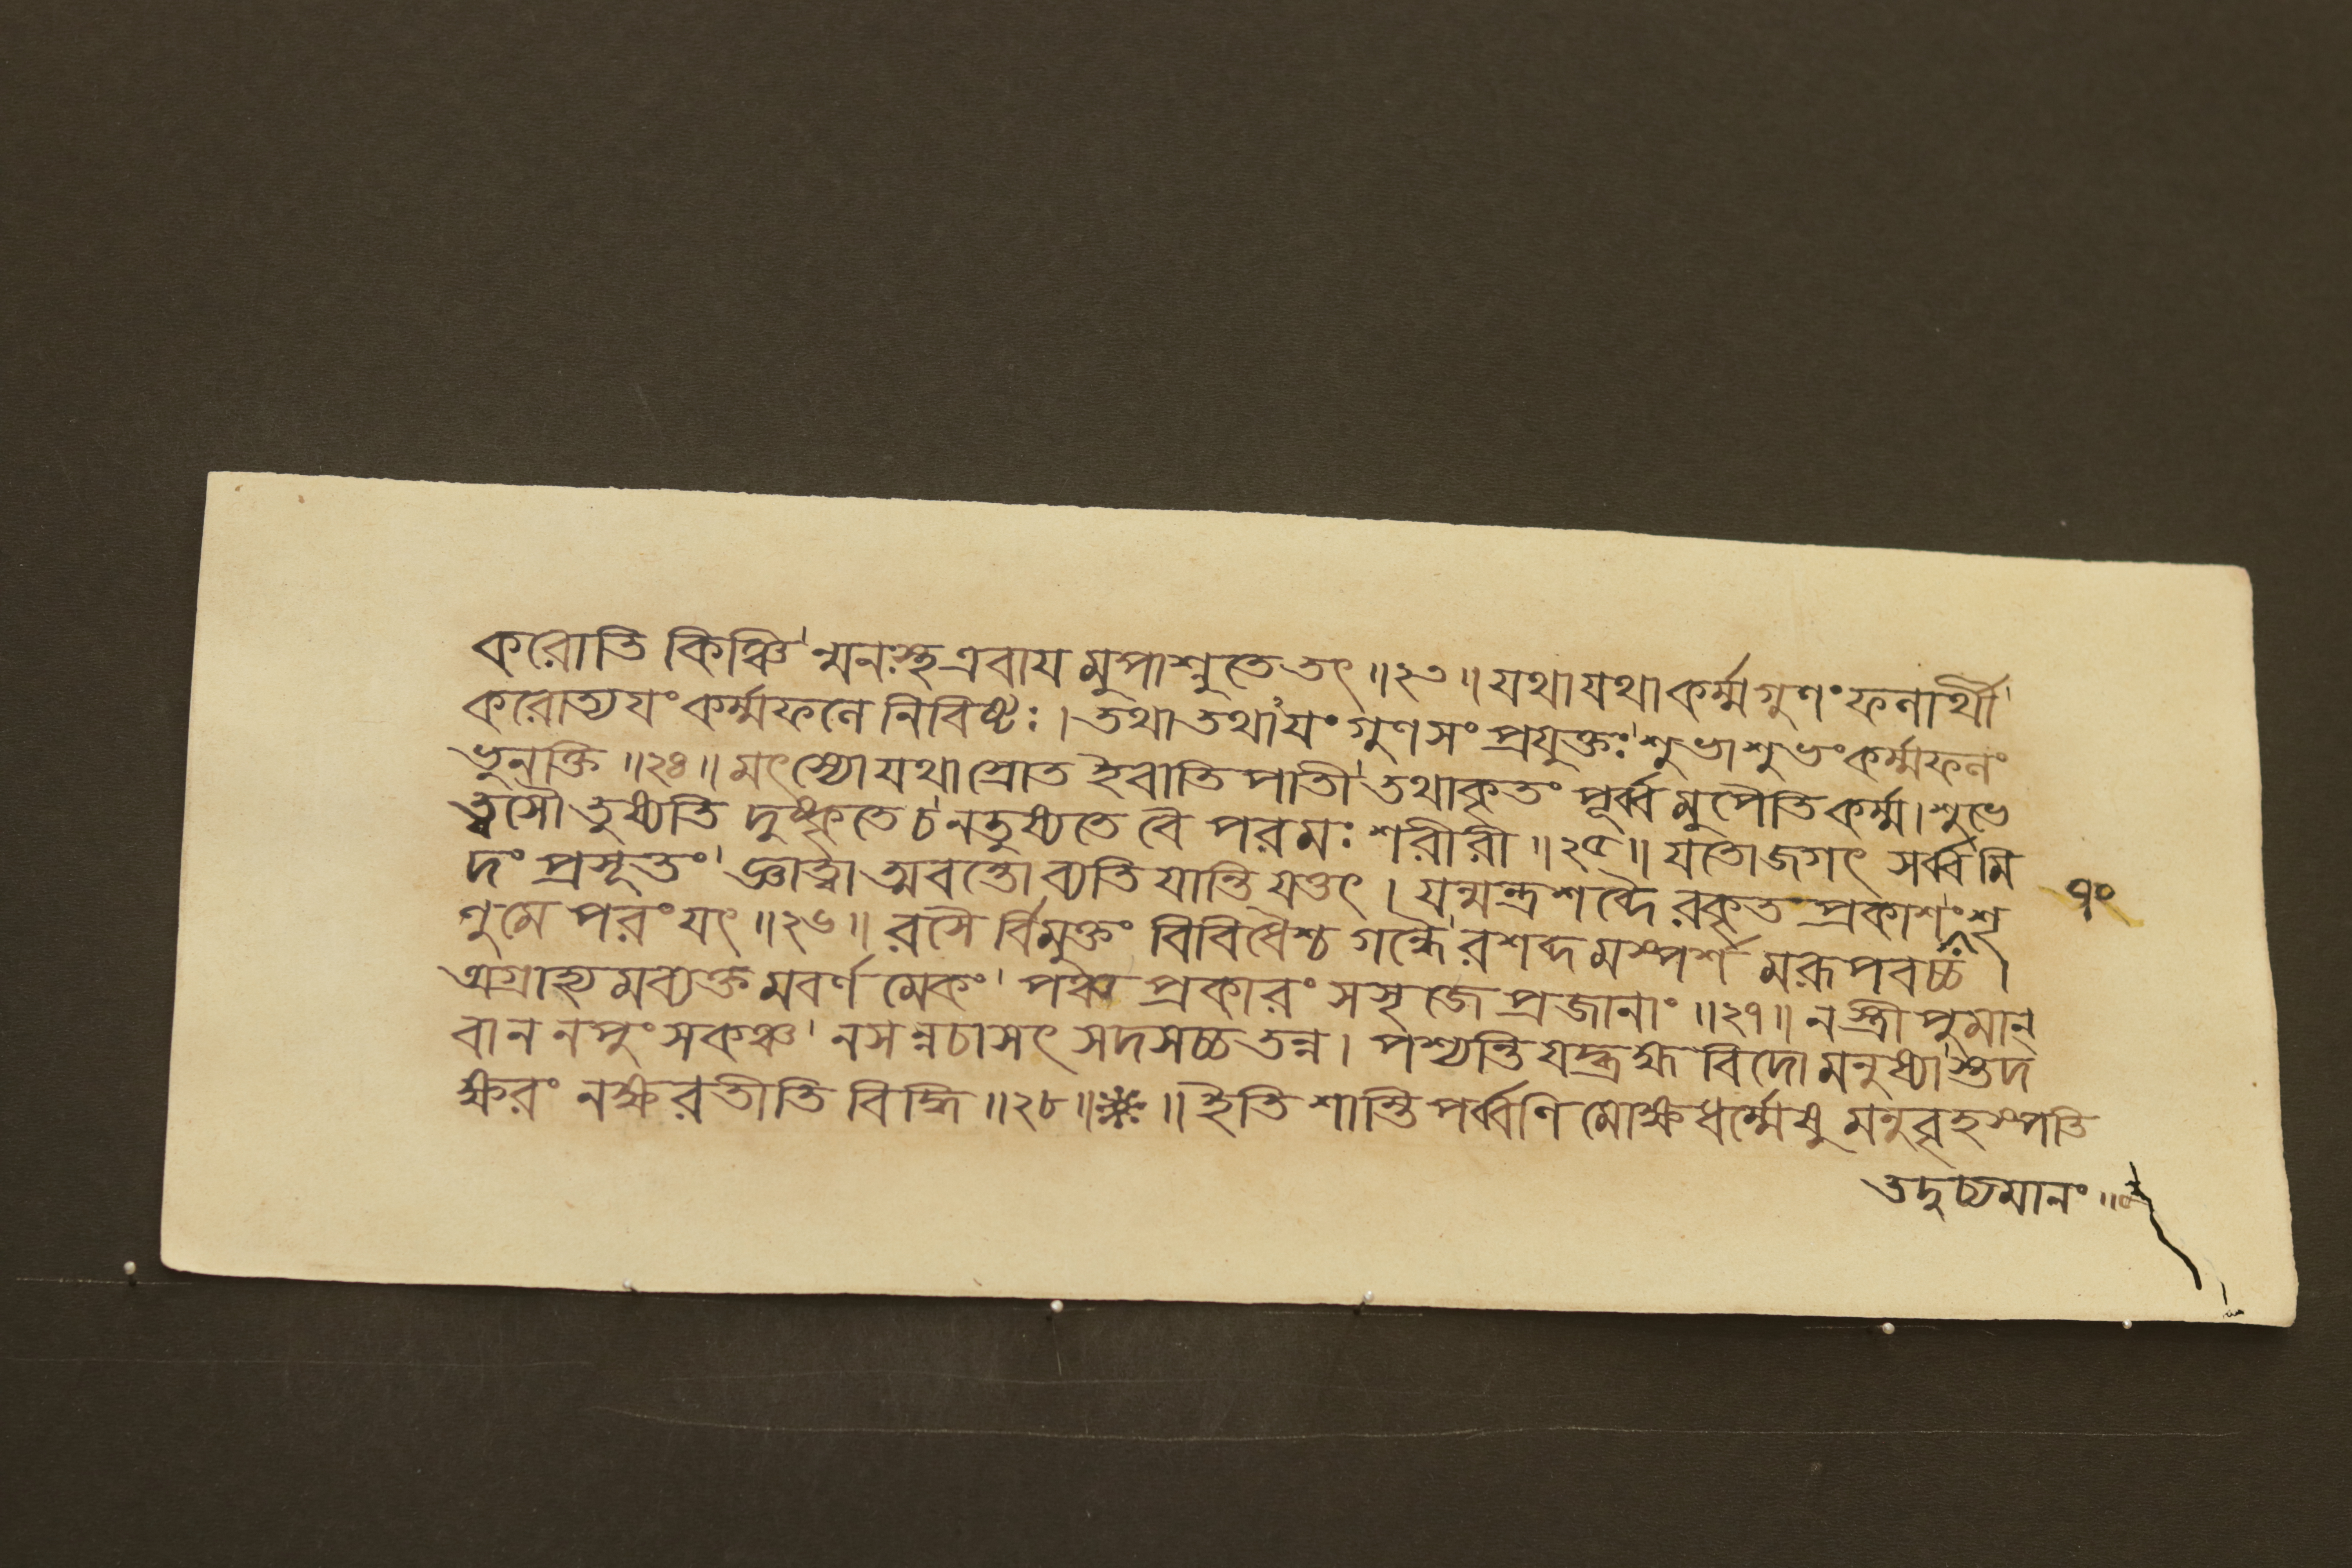 করোতি কিঞ্চি'ন্মনঃস্থ এবায মুপাশ্নুতে তৎ ॥২৩॥ যথা যথা কর্ম্ম গুণং ফলার্থী'
করোত্যযং কর্ম্মফলে নিবিষ্টঃ । তথা তথাযং গুণ সংপ্রযুক্তঃ'শুভাশুভং কর্ম্মফলং
ভুনক্তি ॥২৪॥ মৎস্যো যথা স্রোত ইবাতি পাতী'তথা কৃতং পূর্ব্ব মুপৈতি কর্ম্ম। শুভে
ত্বসৌ তুষ্যতি দুষ্কৃতে চ'নতুষ্যতে বৈ পরমঃ শরীরী ॥২৫॥ যতো জগৎ সর্ব্বমি
দং প্রসূতং' জ্ঞাত্বা অবন্তো ব্যতি যান্তি যত্তৎ । যন্মন্ত্রশব্দৈ রকৃত প্রকাশং'শৃ
ণু মে পরং যৎ ॥২৬॥ রসৈ র্বিমুক্তং বিবিধৈশ্চ গন্ধৈ'রশব্দ মস্পর্শ মরূপবচ্চ ।
অগ্রাহ্য মব্যক্ত মবর্ণ মেকং' পঞ্চ প্রকারং সসৃজে প্রজানাং ॥২৭॥ ন স্ত্রী পুমান্
বা ন নপুংসকঞ্চ' নসন্নচাসৎ সদসচ্চ তন্ন । পশ্যন্তি যদ্ব্রহ্ম বিদো মনুষ্যা'স্তদ
ক্ষরং নক্ষরতীতি বিদ্ধি ॥২৮॥ ॥ ইতি শান্তি পর্ব্বণি মোক্ষধর্ম্মেষু মনুবৃহস্পতি
৭০
তদুচ্যমানং ॥